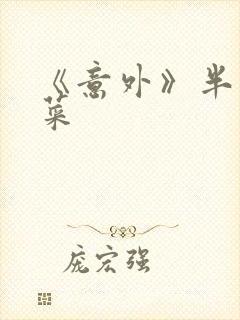 《意外》半
菜
庞宏强